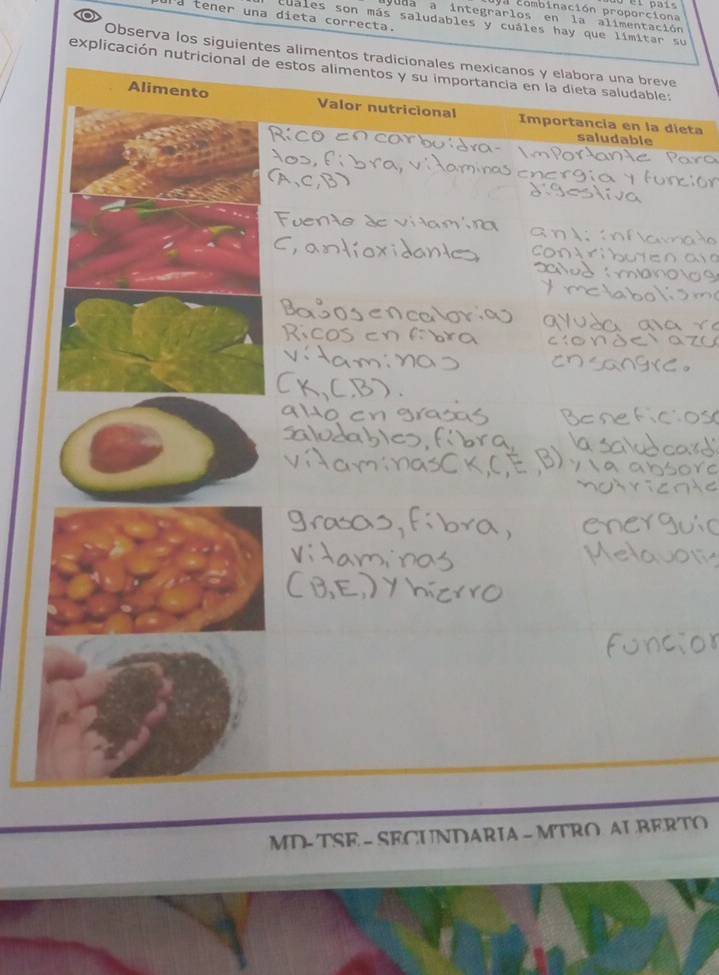 el país
cuya combinación proporciona
ayuda a integrarlos en la alimentación
cuáles son más saludables y cuáles hay que limitar su
para tener una dieta correcta.
Observa los siguientes alimentos tradicionales mexicanos y elabora una breve
explicación nutricional de estos alimentos y su importancia en la dieta saludable:
Alimento
Valor nutricional
Importancia en la dieta
saludable
Rico en carbuidra-
tos, fibra, vitaminas
(A,C,B)
Importante Para
energia y funcion
digestiva
Fuente de vitamina
C, antioxidantes
anti:inflamato
contribuyen ala
salud:
y metabolismo
Bajos en calorias
Ricos en fibra
vitaminas
(K,C,B).
ayuda ala
azu
en sangre.
alto en grasas
saludables, fibra,
vitaminas(K,C,E,B)
Beneficios
la salud card
y la absorc
nutriente
grasas, fibra,
vitaminas
(B,E,) y hierro
energuic
Metavolis
Funcion
MD-TSE-SECUNDARIA-MTRO ALBERTO